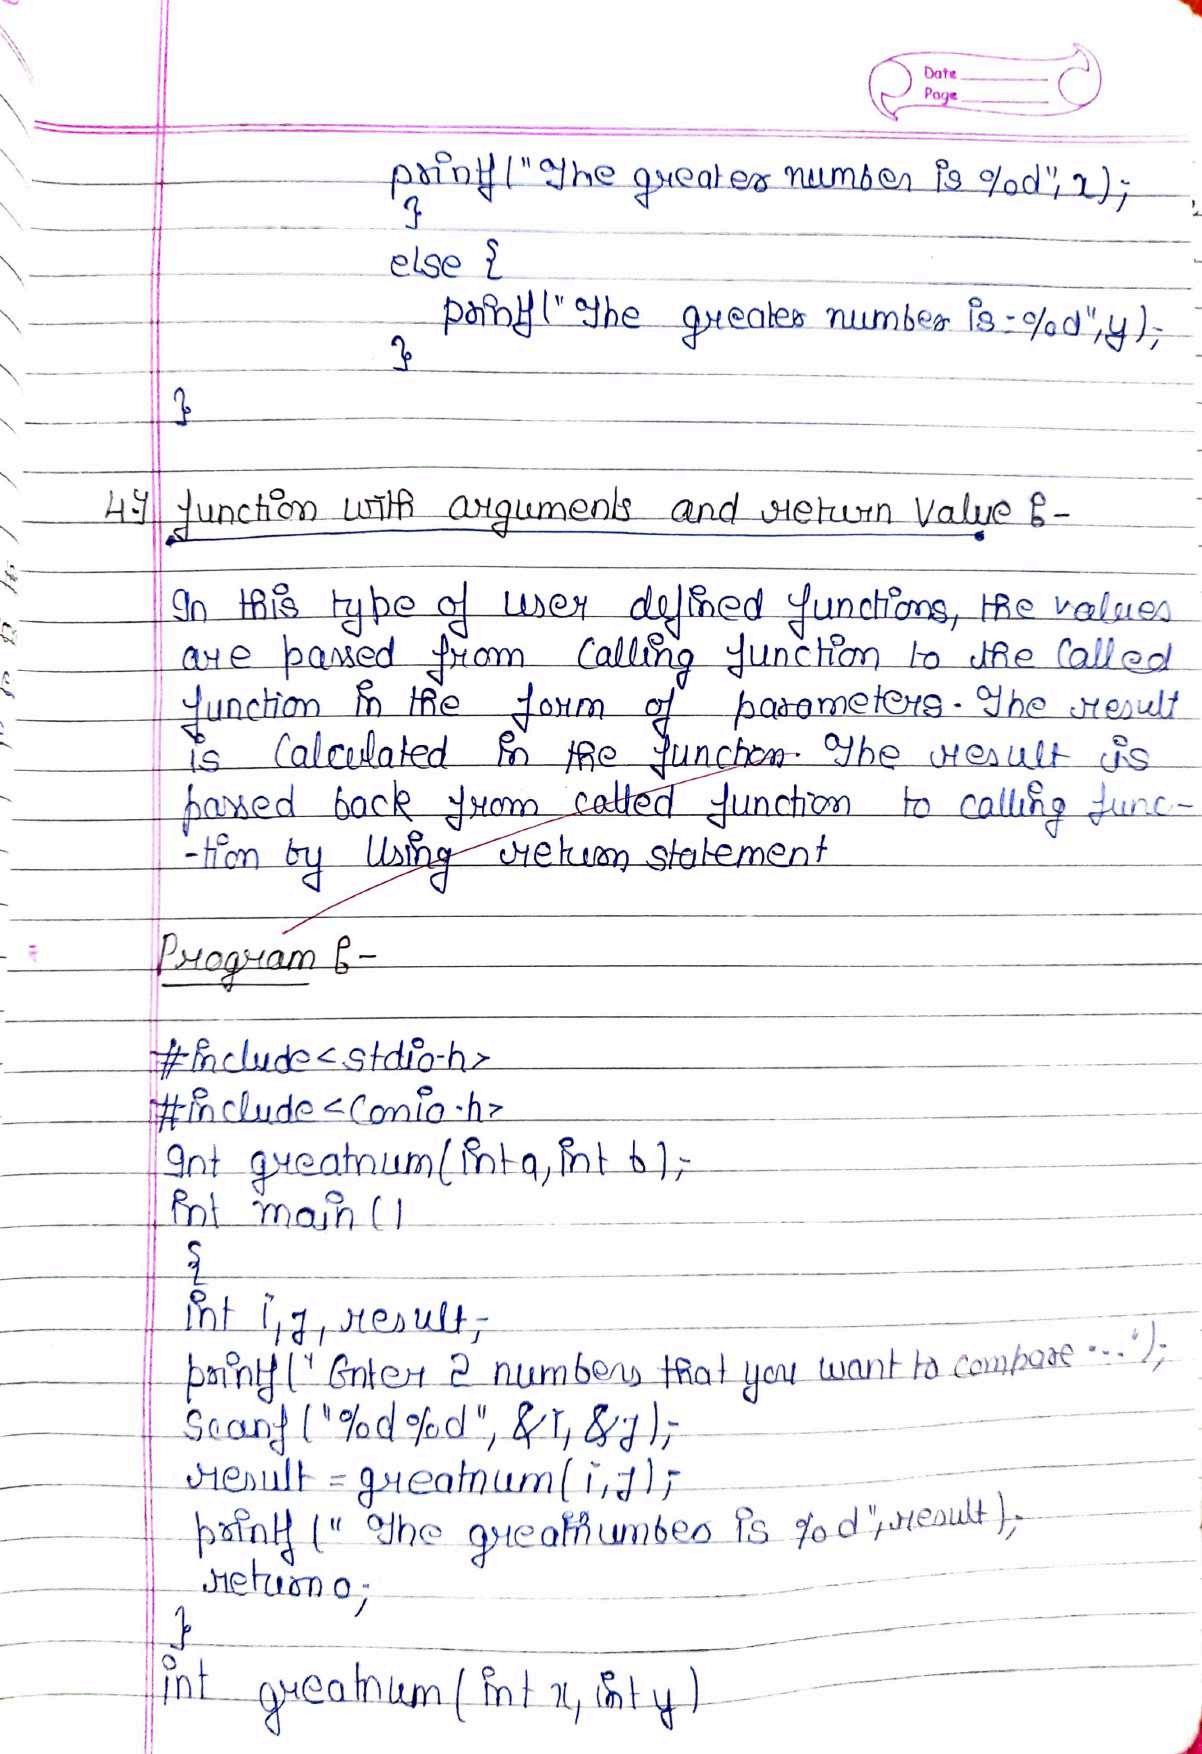 Date
Page
printf("The greater number is %d", x);
}
else {
printf("The greater number is = %d", y);
}
}
4.) function with arguments and return value :-
In this type of user defined functions, the values
are passed from calling function to the called
function in the form of parameters. The result
is calculated in the function. The result is
passed back from called function to calling func-
-tion by using return statement
Program :-
#include<stdio.h>
#include<conio.h>
Int greatnum(int a, int b);
int main ()
{
int i, j, result;
printf("Enter 2 numbers that you want to compare ...");
Scanf("%d%d", &i, &j);
result = greatnum(i, j);
printf("The greatnumber is %d", result);
return 0;
}
int greatnum(int x, int y)